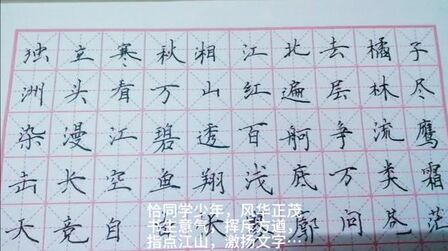 独立寒秋湘江北去橘子
洲头看万山红遍层林尽
染漫江碧透百舸争流鹰
击长空鱼翔浅底万类霜
天竞自 廓问苍茫
恰同学少年，风华正茂
书生意气，挥斥方遒，
指点江山，激扬文字…